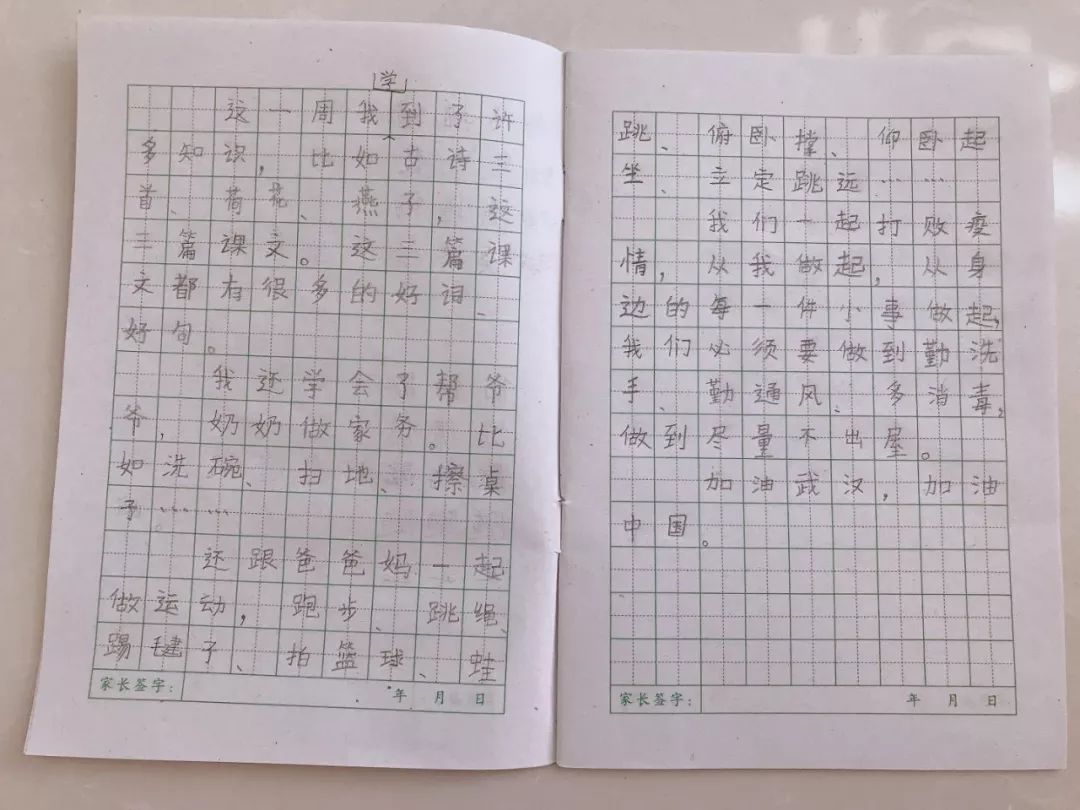 学
这一周我到了许
多知识，比如古诗三
首、荷花、燕子，这
三篇课文。这三篇课
文都有很多的好词、
好句。
我还学会了帮爷
爷，奶奶做家务。比
如洗碗、扫地、擦桌
子……
还跟爸爸妈一起
做运动，跑步、跳绳、
踢毽子、拍篮球、蛙
家长签字：
年 月 日
跳、俯卧撑、仰卧起
坐、立定跳远……
我们一起打败疫
情，从我做起，从身
边的每一件小事做起，
我们必须要做到勤洗
手、勤通风、多消毒，
做到尽量不出屋。
加油武汉，加油
中国。
家长签字：
年 月 日